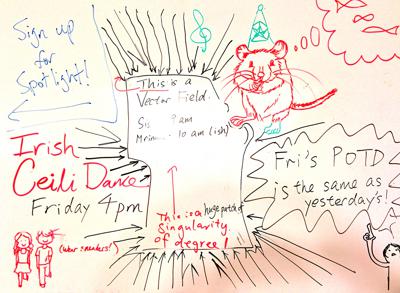 Sign up
for
Spotlight!
This is a
Vector Field.
9 am
10 am (ish)
Irish
Ceili Dance
Friday 4pm
(wear sneakers!)
This is a huge patch of
singularity
of degree 1
Fri's POTD
is the same as
yesterday's!